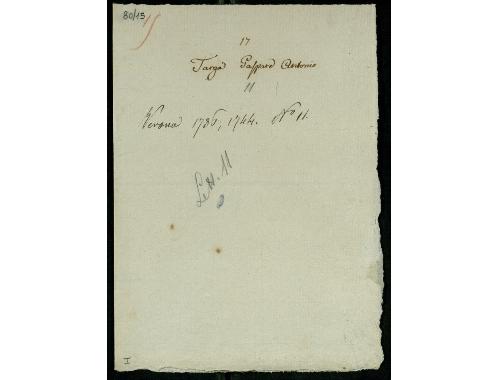 80/15
17
Targa Gaspare Antonio
11
Verona 1736, 1744. Nº 11.
Lett. 11
I